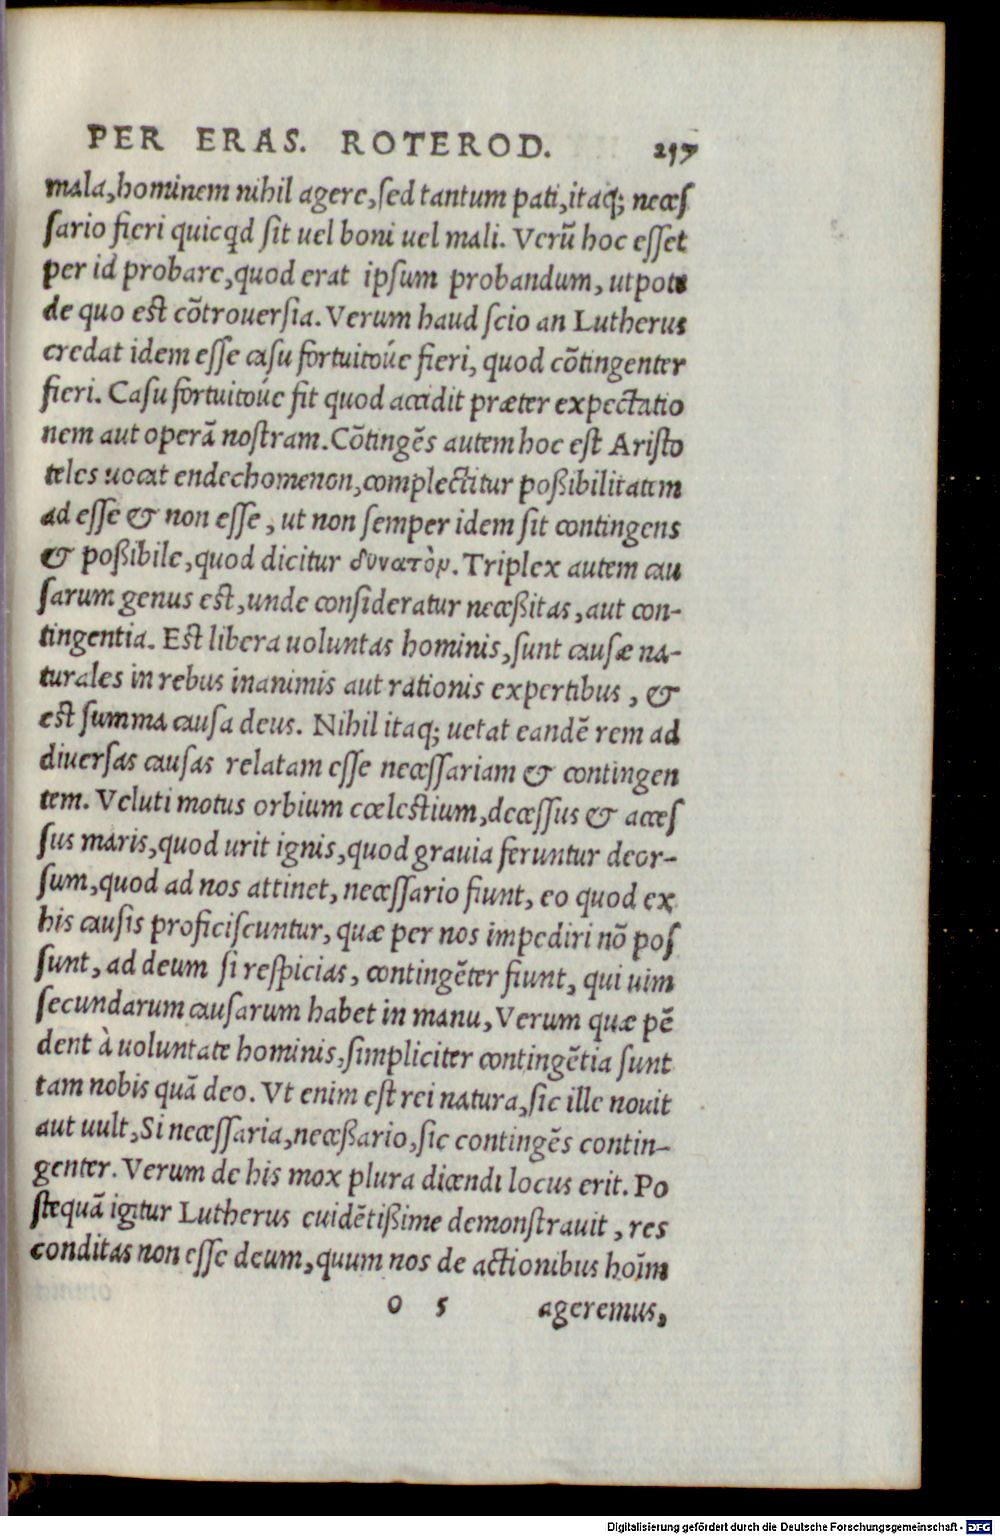 PER ERAS. ROTEROD. 217
mala,hominem nihil agere,ſed tantum pati,itaq; neceſ
ſario fieri quicqd ſit uel boni uel mali. Verũ hoc eſſet
per id probare,quod erat ipſum probandum, utpote
de quo eſt cõtrouerſia. Verum haud ſcio an Lutherus
credat idem eſſe caſu fortuitoúe fieri, quod cõtingenter
fieri. Caſu fortuitoúe fit quod accidit præter expectatio
nem aut operã noſtram. Cõtingẽs autem hoc eſt Ariſto
teles uocat endechomenon,complectitur poßibilitatem
ad eſſe & non eſſe, ut non ſemper idem ſit contingens
& poßibile,quod dicitur δυνατὸν. Triplex autem cau
ſarum genus eſt,unde conſideratur neceßitas,aut con-
tingentia. Eſt libera uoluntas hominis,ſunt cauſæ na-
turales in rebus inanimis aut rationis expertibus, &
eſt ſumma cauſa deus. Nihil itaq; uetat eandẽ rem ad
diuerſas cauſas relatam eſſe neceſſariam & contingen
tem. Veluti motus orbium cœleſtium,deceſſus & acceſ
ſus maris,quod urit ignis,quod grauia feruntur deor-
ſum,quod ad nos attinet, neceſſario fiunt, eo quod ex
his cauſis proficiſcuntur, quæ per nos impediri nõ poſ
ſunt, ad deum ſi reſpicias, contingẽter fiunt, qui uim
ſecundarum cauſarum habet in manu, Verum quæ pẽ
dent à uoluntate hominis,ſimpliciter contingẽtia ſunt
tam nobis quã deo. Vt enim eſt rei natura,ſic ille nouit
aut uult, Si neceſſaria,neceßario,ſic contingẽs contin-
genter. Verum de his mox plura dicendi locus erit. Po
ſtequã igitur Lutherus euidẽtißime demonſtrauit, res
conditas non eſſe deum,quum nos de actionibus hoĩm
o 5 ageremus,
Digitalisierung gefördert durch die Deutsche Forschungsgemeinschaft - DFG